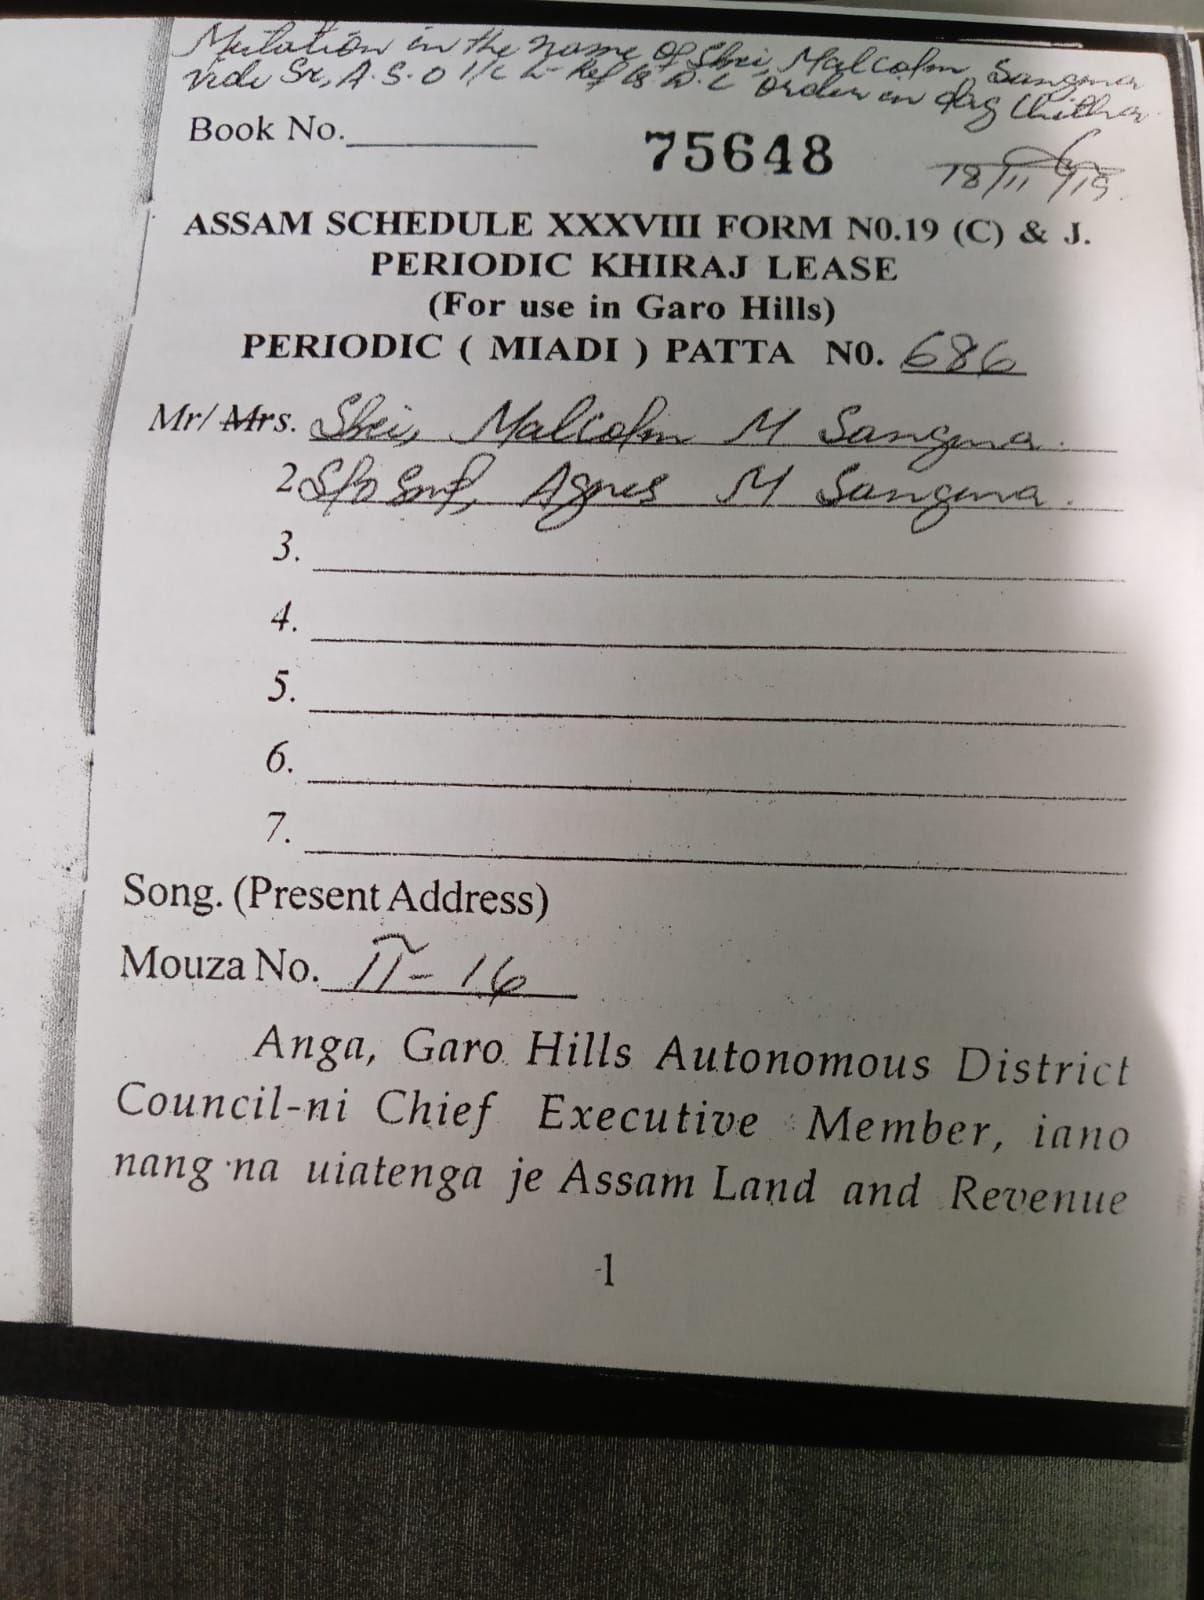 Mutation in the name of Shri, Malcolm Sangma
vide Sr, A.S.O I/C L- Ref D.C order on dag Chitha
Book No.
75648
18/11
ASSAM SCHEDULE XXXVIII FORM N0.19 (C) & J.
PERIODIC KHIRAJ LEASE
(For use in Garo Hills)
PERIODIC ( MIADI ) PATTA N0. 686
Mr/ Mrs. Shri, Malcolm M Sangma.
2 S/o Smt, Agnes M Sangma.
3.
4.
5.
6.
7.
Song. (Present Address)
Mouza No. II-16
Anga, Garo Hills Autonomous District
Council-ni Chief Executive Member, iano
nang·na uiatenga je Assam Land and Revenue
1